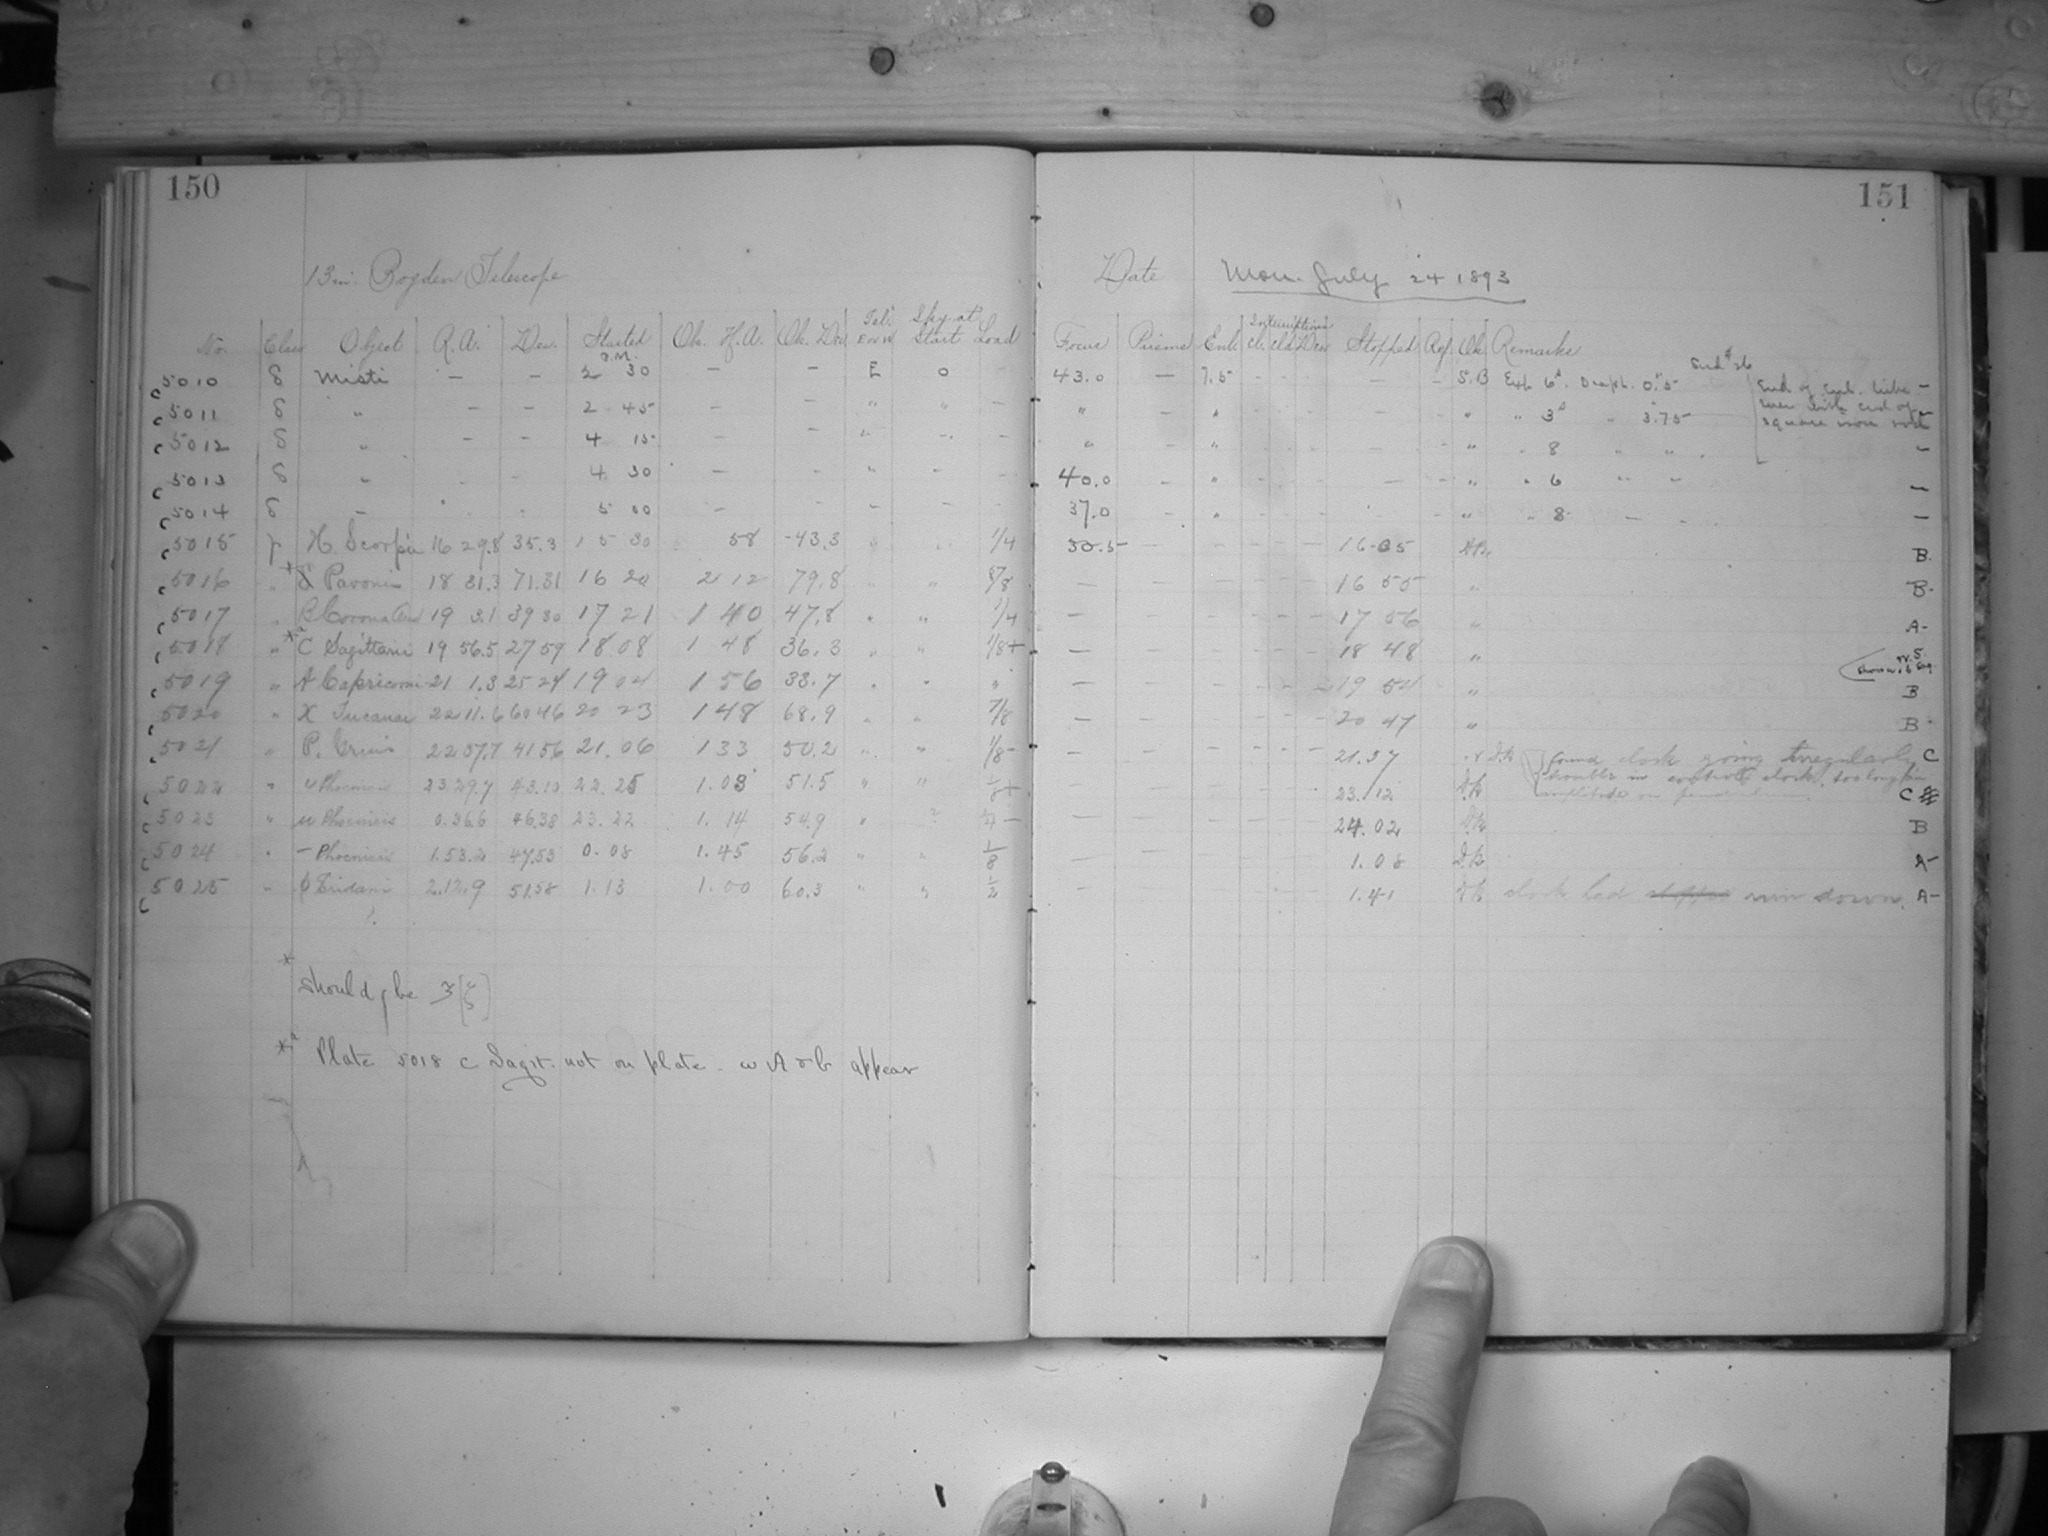 150
13 in. Boyden Telescope
No. Class Object R.A. Dec. Started Ob. H.A. Ob. Dec. Tel. E or W Sky at Start Load
P.M.
5010 δ Misti — — 2 30 — — E 0
5011 δ " — — 2 45 — — " "
5012 δ " — — 4 15 — — " "
5013 δ " 4 30 — — " —
5014 δ — 5 00 —
5015 H Scorpii 16 29.8 35.3 15 30 58 -43.3 " 1/4
5016 " Pavonis 18 31.3 71.31 16 20 2 12 79.8 " " 7/8
5017 " B Corona Aus 19 3.1 39 30 17 21 1 40 47.8 " " 1/4
5018 " *² C Sagittarii 19 56.5 27 59 18 08 1 48 36.3 " " 1/8+
5019 " A Capricorni 21 1.3 25 24 19 04 1 56 33.7 " " "
5020 " X Tucanae 22 11.6 60 46 20 23 1 48 68.9 " " 7/8
5021 " P. Gruis 22 37.7 41 56 21.06 1 33 50.2 " " 1/8-
5022 " Phoenicis 23.29.7 43.10 22.25 1.03 51.5 " " 1/8+
5023 " μ Phoenicis 0.36.6 46.38 23.22 1.14 54.9 "
5024 " — Phoenicis 1.53.2 47.53 0.08 1.45 56.2 " " 1/8
5025 " φ Eridani 2.12.9 51.58 1.13 1.00 60.3 " " 1/2
*
should be ζ [ζ]
*² Plate 5018 C Sagit. not on plate. ω A & b appear
151
Date Mon. July 24 1893
Focus Prisms Enl. Interruptions Cl. Cld Dew Stopped Ref. Ob. Remarks
43.0 — 7.5 — S.B Exp. 6ˢ. Diaph. 0".5
" — " " " 3ˢ " 3.75
" — " " " 8 " "
40.0 — " " " 6 " "
37.0 — " " " 8 —
End of
square iron rod
50.5 — 16 05 B
— 16 55 " B-
— 17 56 " A-
— 18 48 "
— 19 54 " B
— 20 47 " B
— 21.37 found clock going irregularly C
trouble in control clock, too long an
amplitude on pendulum
— 23.12 C
— 24.02 B
— 1.08 A-
— 1.41 clock had stopped run down. A-